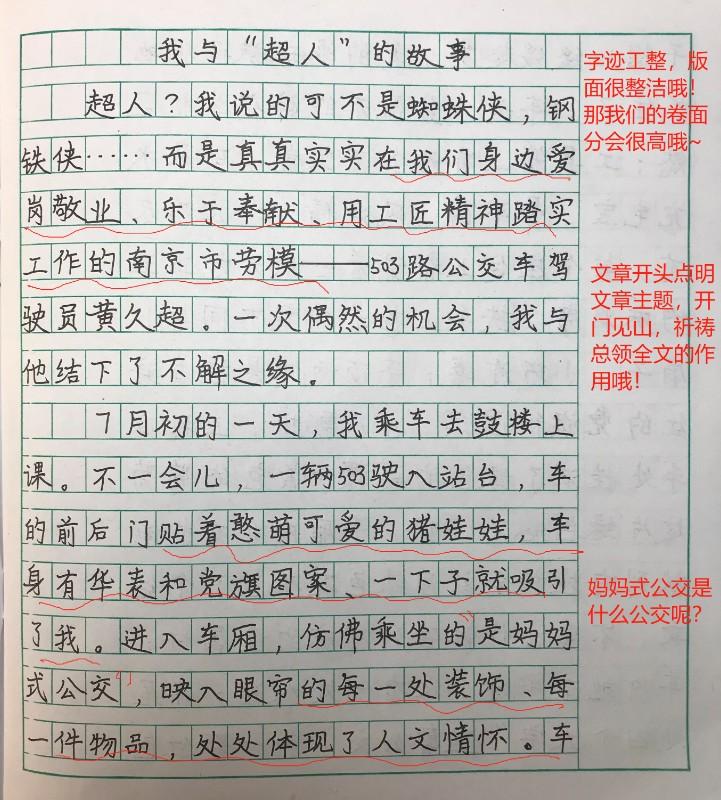 我与“超人”的故事
超人？我说的可不是蜘蛛侠，钢
铁侠……而是真真实实在我们身边爱
岗敬业、乐于奉献、用工匠精神踏实
工作的南京市劳模——503路公交车驾
驶员黄久超。一次偶然的机会，我与
他结下了不解之缘。
7月初的一天，我乘车去鼓楼上
课。不一会儿，一辆503驶入站台，车
的前后门贴着憨萌可爱的猪娃娃，车
身有华表和党旗图案、一下子就吸引
了我。进入车厢，仿佛乘坐的“是妈妈
式公交”，映入眼帘的每一处装饰、每
一件物品，处处体现了人文情怀。车
字迹工整，版
面很整洁哦！
那我们的卷面
分会很高哦~
文章开头点明
文章主题，开
门见山，祈祷
总领全文的作
用哦！
妈妈式公交是
什么公交呢？